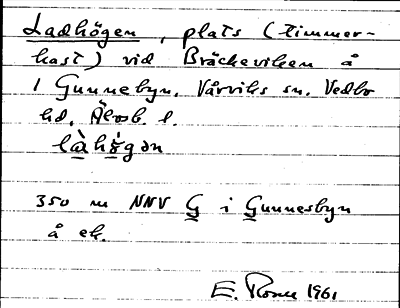 Ladhögen, plats (timmer-
kast) vid Bräckeviken å
1 Gunnebyn. Vårviks sn. Vedbo
hd. Älvsb. l.
là̱hö̱gən
350 m NNV G̱ i G̱unnesbyn
å ek.
E. 1961